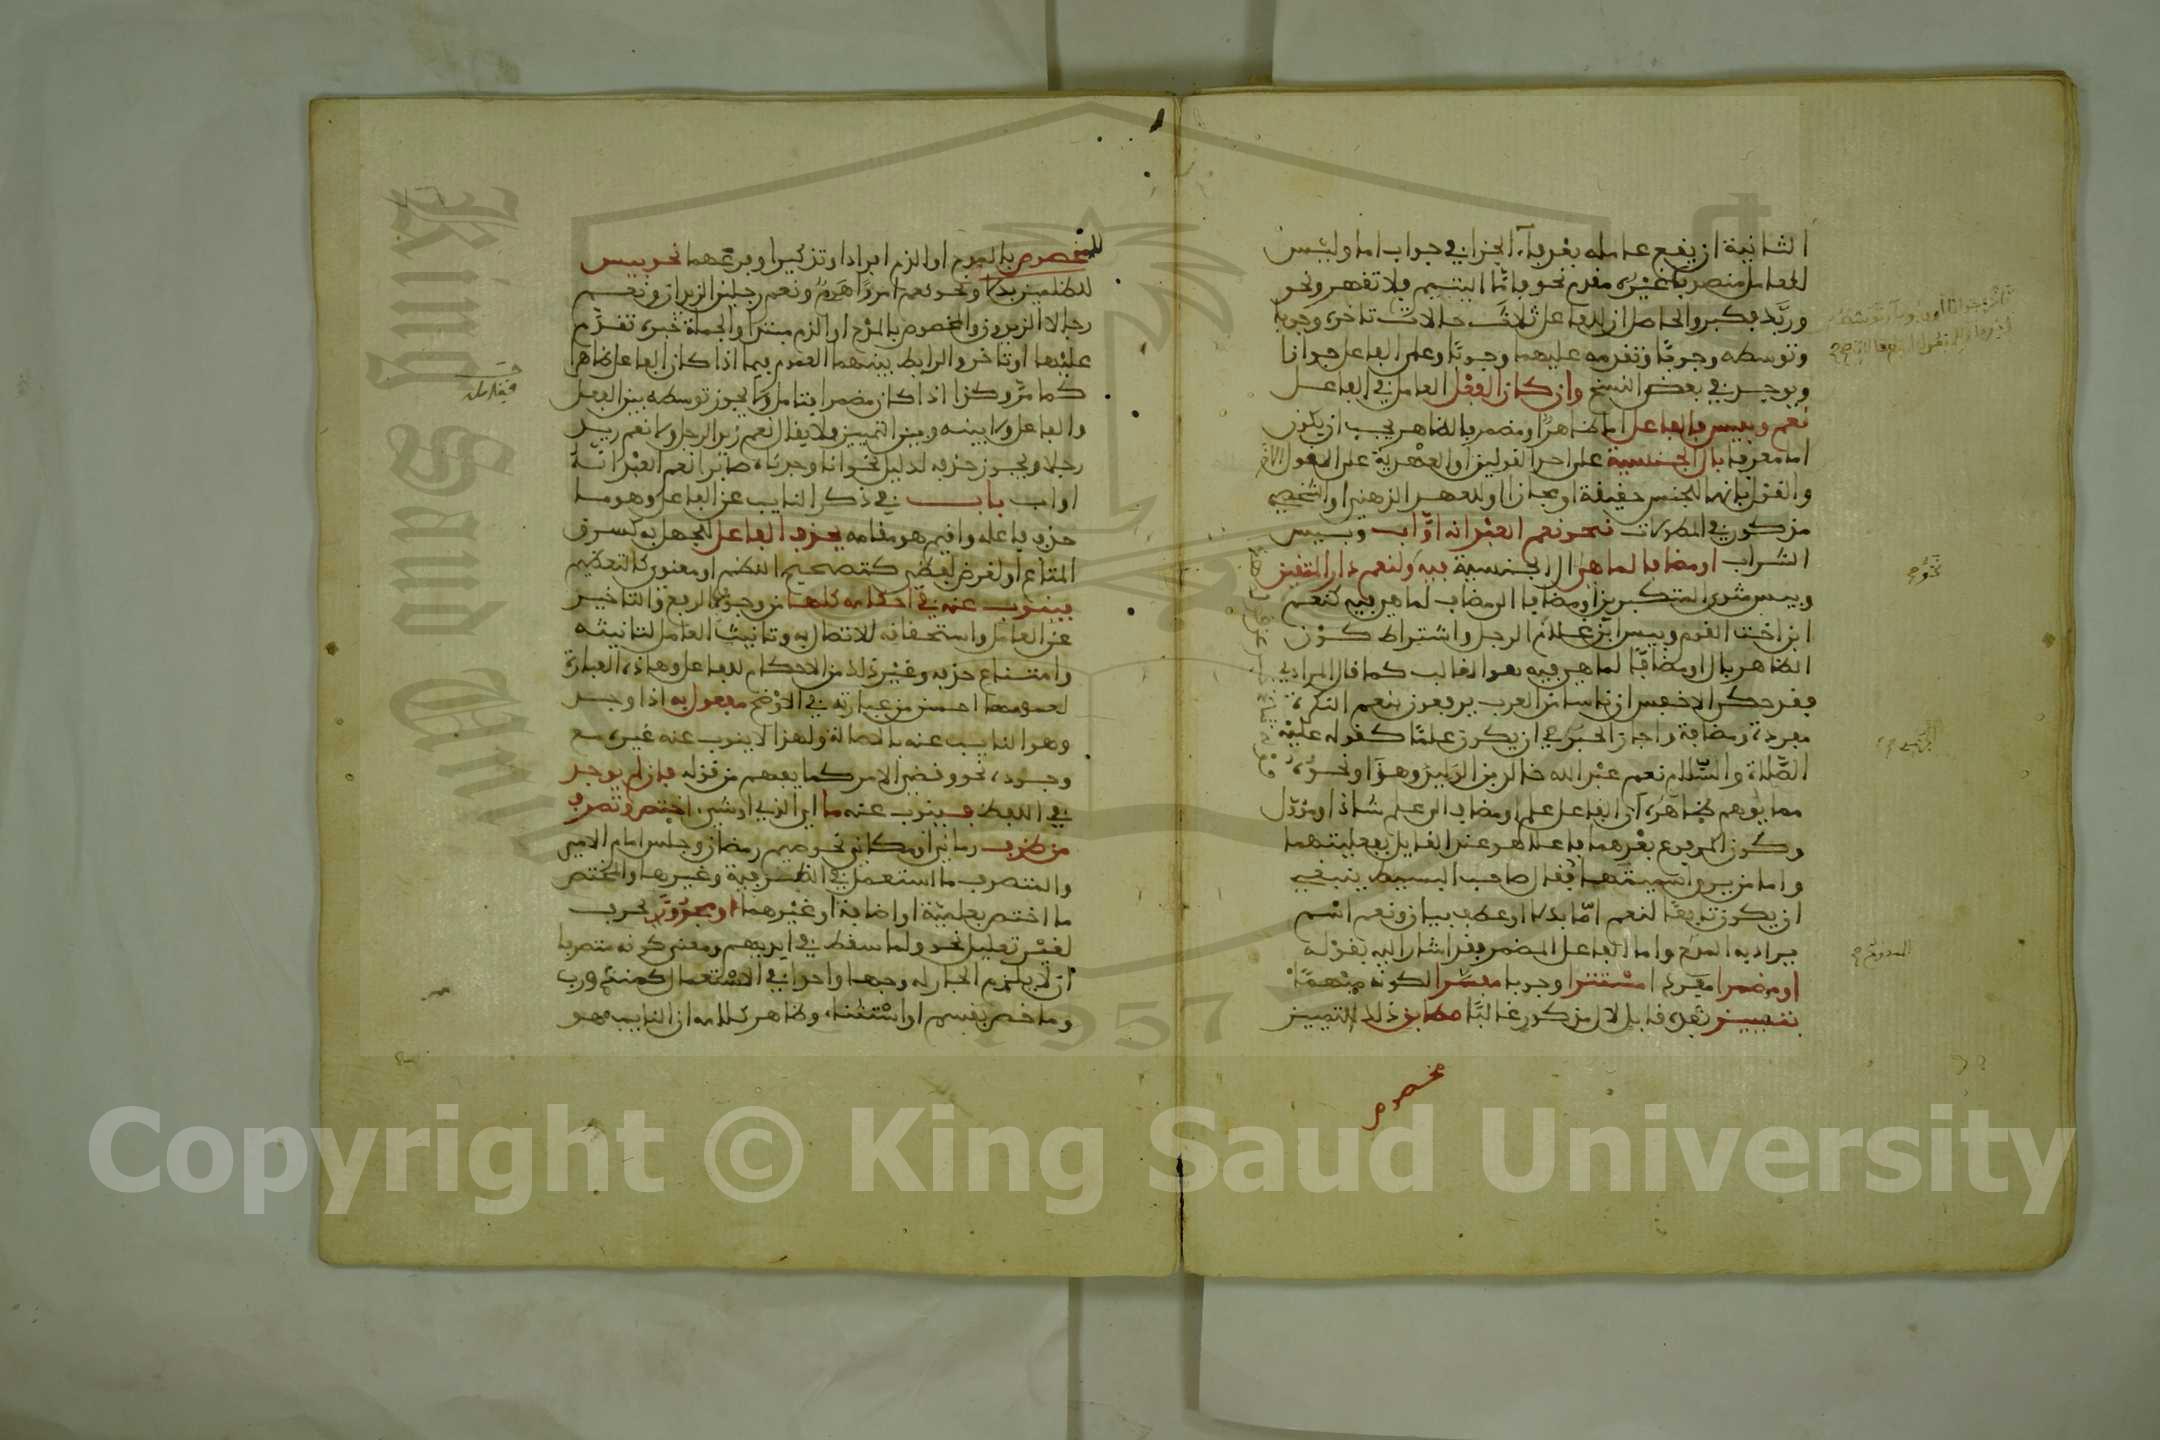 الثانية ان يقع عامله بعد فاء الجزا في جواب اما وليس
للعامل منصوب غيره مقدم نحو فاما اليتيم فلا تقهر ونحو
وربك فكبر والحاصل ان للفاعل ثلاث حالات تاخره وجوبا
وتوسطه وجوبا وتقدمه عليهما وجوبا وعلى الفاعل جوازا
ويوجد في بعض النسخ وان كان الفعل العامل في الفاعل
نعم وبيس فالفاعل اما ظاهرا او مضمر فالظاهر يجب ان يكون
اما معرفا بال الجنسية على احد القولين او العهدية على القول
والقول بانها للجنس حقيقة او مجازا او للعهد الذهني او الشخصي
مذكور في المطولات نحو نعم العبد انه اواب وبيس
الشراب او مضافا لما هي ال الجنسية فيه ولنعم دار المتقين
وبيس مثوى المتكبرين او مضافا الى مضاف لما هي فيه كنعم
ابن اخت القوم وبيس ابن غلام الرجل واشتراط كون
الظاهر بال او مضافا لما هي فيه هو الغالب كما قال المرادي
فقد حكى الاخفش ان ناسا من العرب يرفعون بنعم النكرة
مفردة ومضافة واجاز الجرمي ان يكون علما كقوله عليه
الصلاة والسلام نعم عبد الله خالد بن الوليد وهذا ونحوه
مما يوهم ظاهره ان الفاعل علم او مضاف الى علم شاذ او مؤول
وكون المرفوع بعدهما فاعلا هو عند القايل بفعليتهما
واما من يرى اسميتهما فقال صاحب البسيط ينبغي
ان يكون تابعا لنعم اما بدلا او عطف بيان ونعم اسم
يراد به المدح واما الفاعل المضمر فقد اشار اليه بقوله
او مضمرا مفردا مستترا وجوبا مفسرا لكونه مبهما
بتمييز بعده قابل لال مذكور غالبا مطابق ذلك التمييز
مخصوص
للمخصوص بالمدح او الذم افرادا وتذكيرا وفرعهما نحو بيس
للظلمين بدلا ونحو نعم امرءا هرم ونعم رجلين الزيدان ونعم
رجالا الزيدون والمخصوص بالمدح او الذم مبتدا والجملة خبره تقدم
عليها او تاخر والرابط بينهما العموم فيما اذا كان الفاعل ظاهرا
كما مر وكذا اذا كان مضمرا بتامل ولا يجوز توسطه بين الفعل
والفاعل ولا بينه وبين التمييز فلا يقال نعم زيد الرجل ولا نعم زيد
رجلا ويجوز حذفه لدليل نحو انا وجدناه صابرا نعم العبد انه
اواب باب في ذكر النايب عن الفاعل وهو ما
حذف فاعله واقيم هو مقامه يحذف الفاعل للجهل به كسرق
المتاع او لغرض لفظي كتصحيح النظم او معنوي كالتعظيم
فينوب عنه في احكامه كلها من وجوب الرفع والتاخير
عن العامل واستحقاقه للاتصال به وتانيث العامل لتانيثه
وامتناع حذفه وغير ذلك من الاحكام للفاعل وهاذه العبارة
لعمومها احسن من عبارته في الاوضح مفعول به اذا وجد
وهو النايب عنه بالاصالة ولهذا لا ينوب عنه غيره مع
وجوده نحو وقضي الامر كما يفهم من قوله فان لم يوجد
في اللفظ فينوب عنه ما اي الذي او شيء اختص وتصرف
من ظرف زماني او مكاني نحو صيم رمضان وجلس امام الامير
والمتصرف ما استعمل في الظرفية وغيرها والمختص
ما اختص بعلمية او اضافة او غيرهما او مجرور بحرف
لغير تعليل نحو ولما سقط في ايديهم ومعنى كونه متصرفا
ان لا يلزم الجار له وجها واحدا في الاستعمال كمنذ ورب
وما خص بقسم او استثناء وظاهر كلامه ان النايب هو